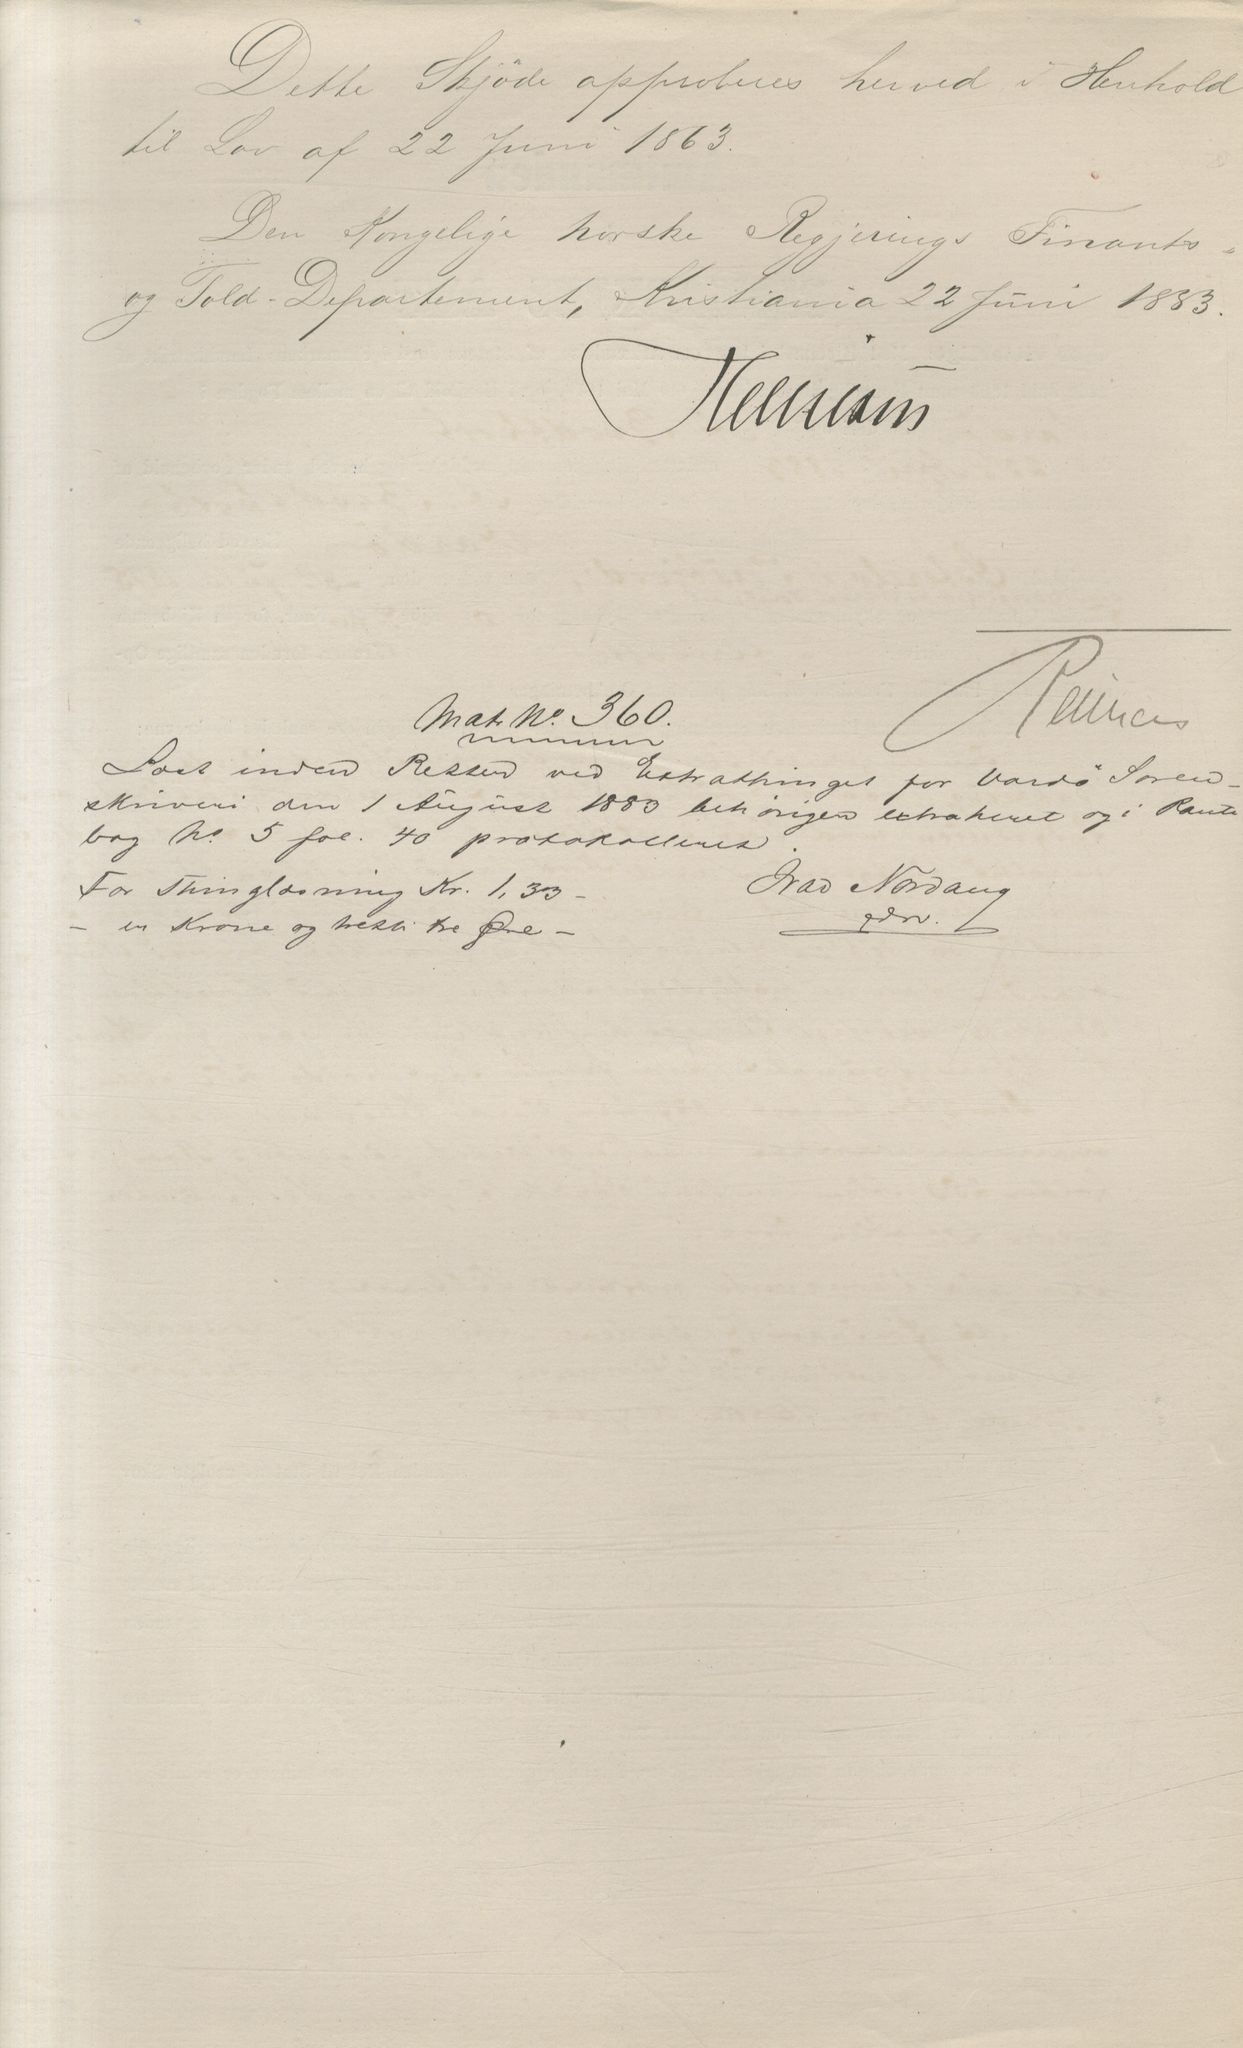 Dette Skjöde approberes herved i Henhold
til Lov af 22 Juni 1863.
Den Kongelige norske Regjerings Finants-
og Told-Departement, Kristiania 22 Juni 1883.
Mat. No. 360.
Læst inden Retten ved Extrathinget for Vardö Soren-
skriveri den 1 August 1883 behörigen extraheret og i Pante
bog No. 5 fol. 40 protokolleret.
For Thinglæsning Kr. 1,33 -
- en Krone og tretti tre Øre -
Ivad Nordaug